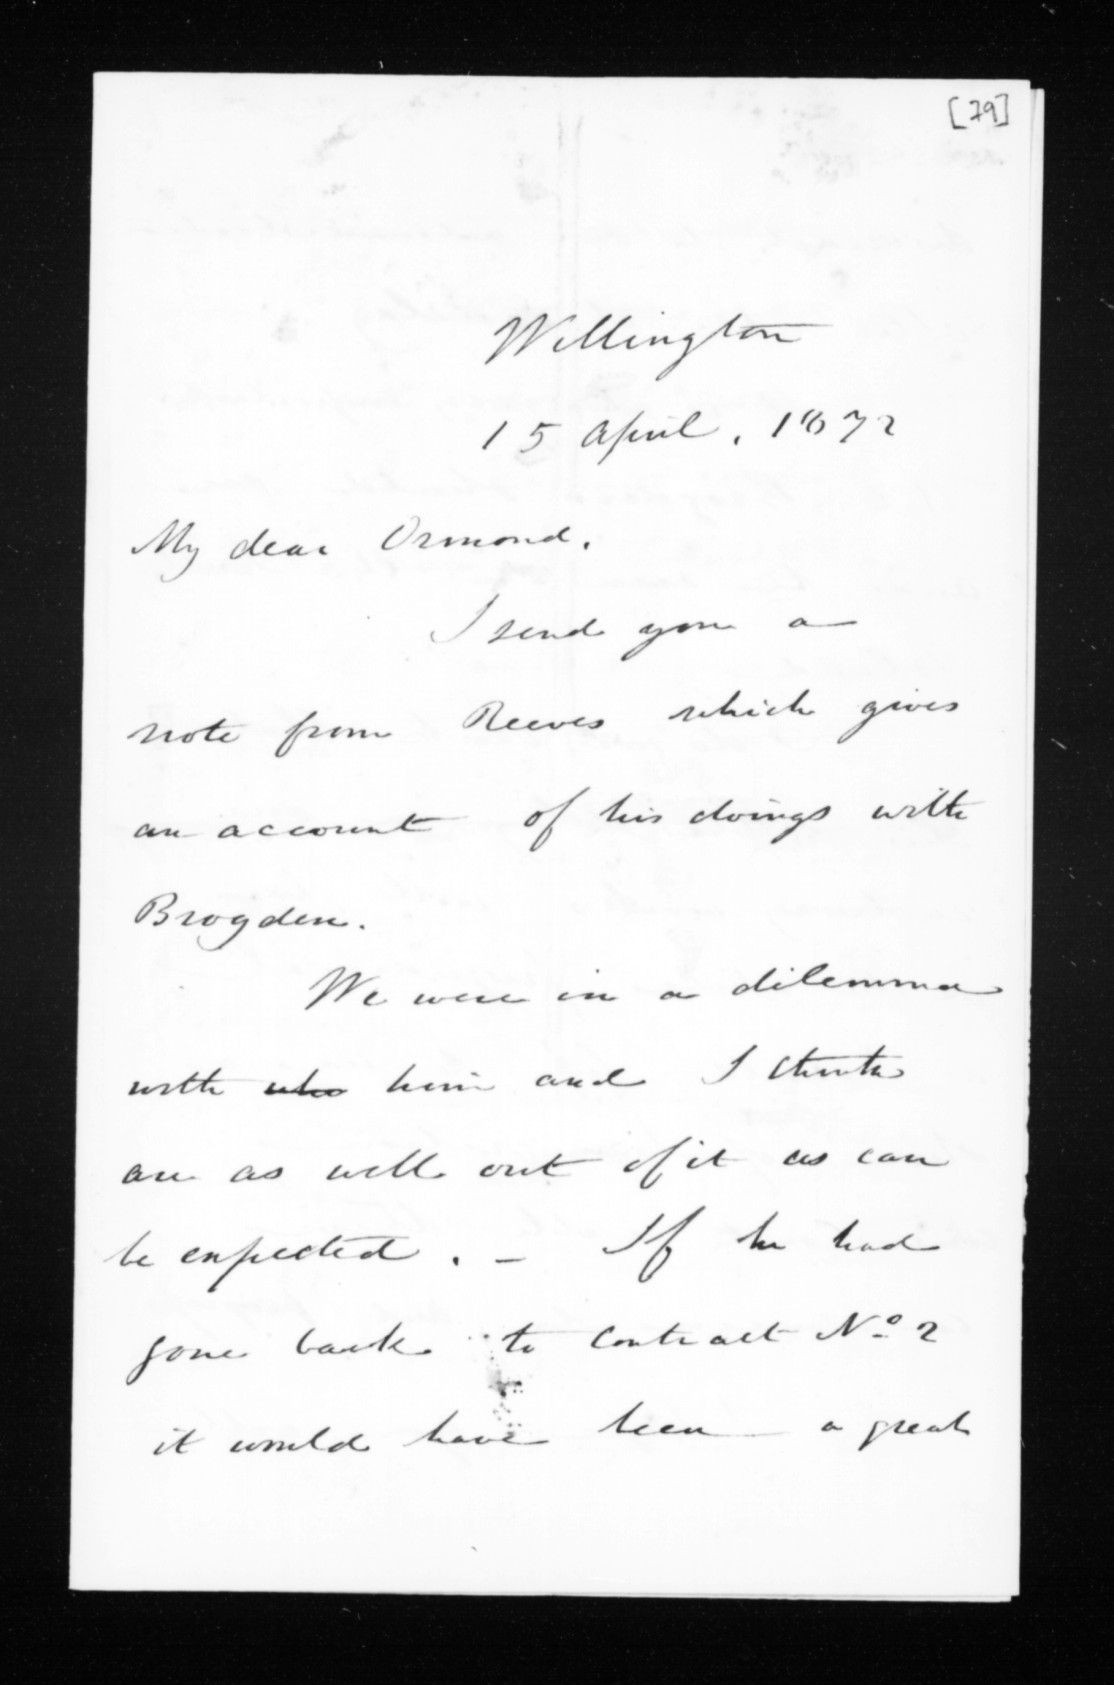 [79]
Wellington
15 April. 1872
My dear Ormond.
I send you a
note from Reeves which gives
an account of his doings with
Brogden.
We were in a dilemma
with who him and I think
are as well out of it as can
be expected. - If he had
gone back to Contract No. 2
it would have been a great